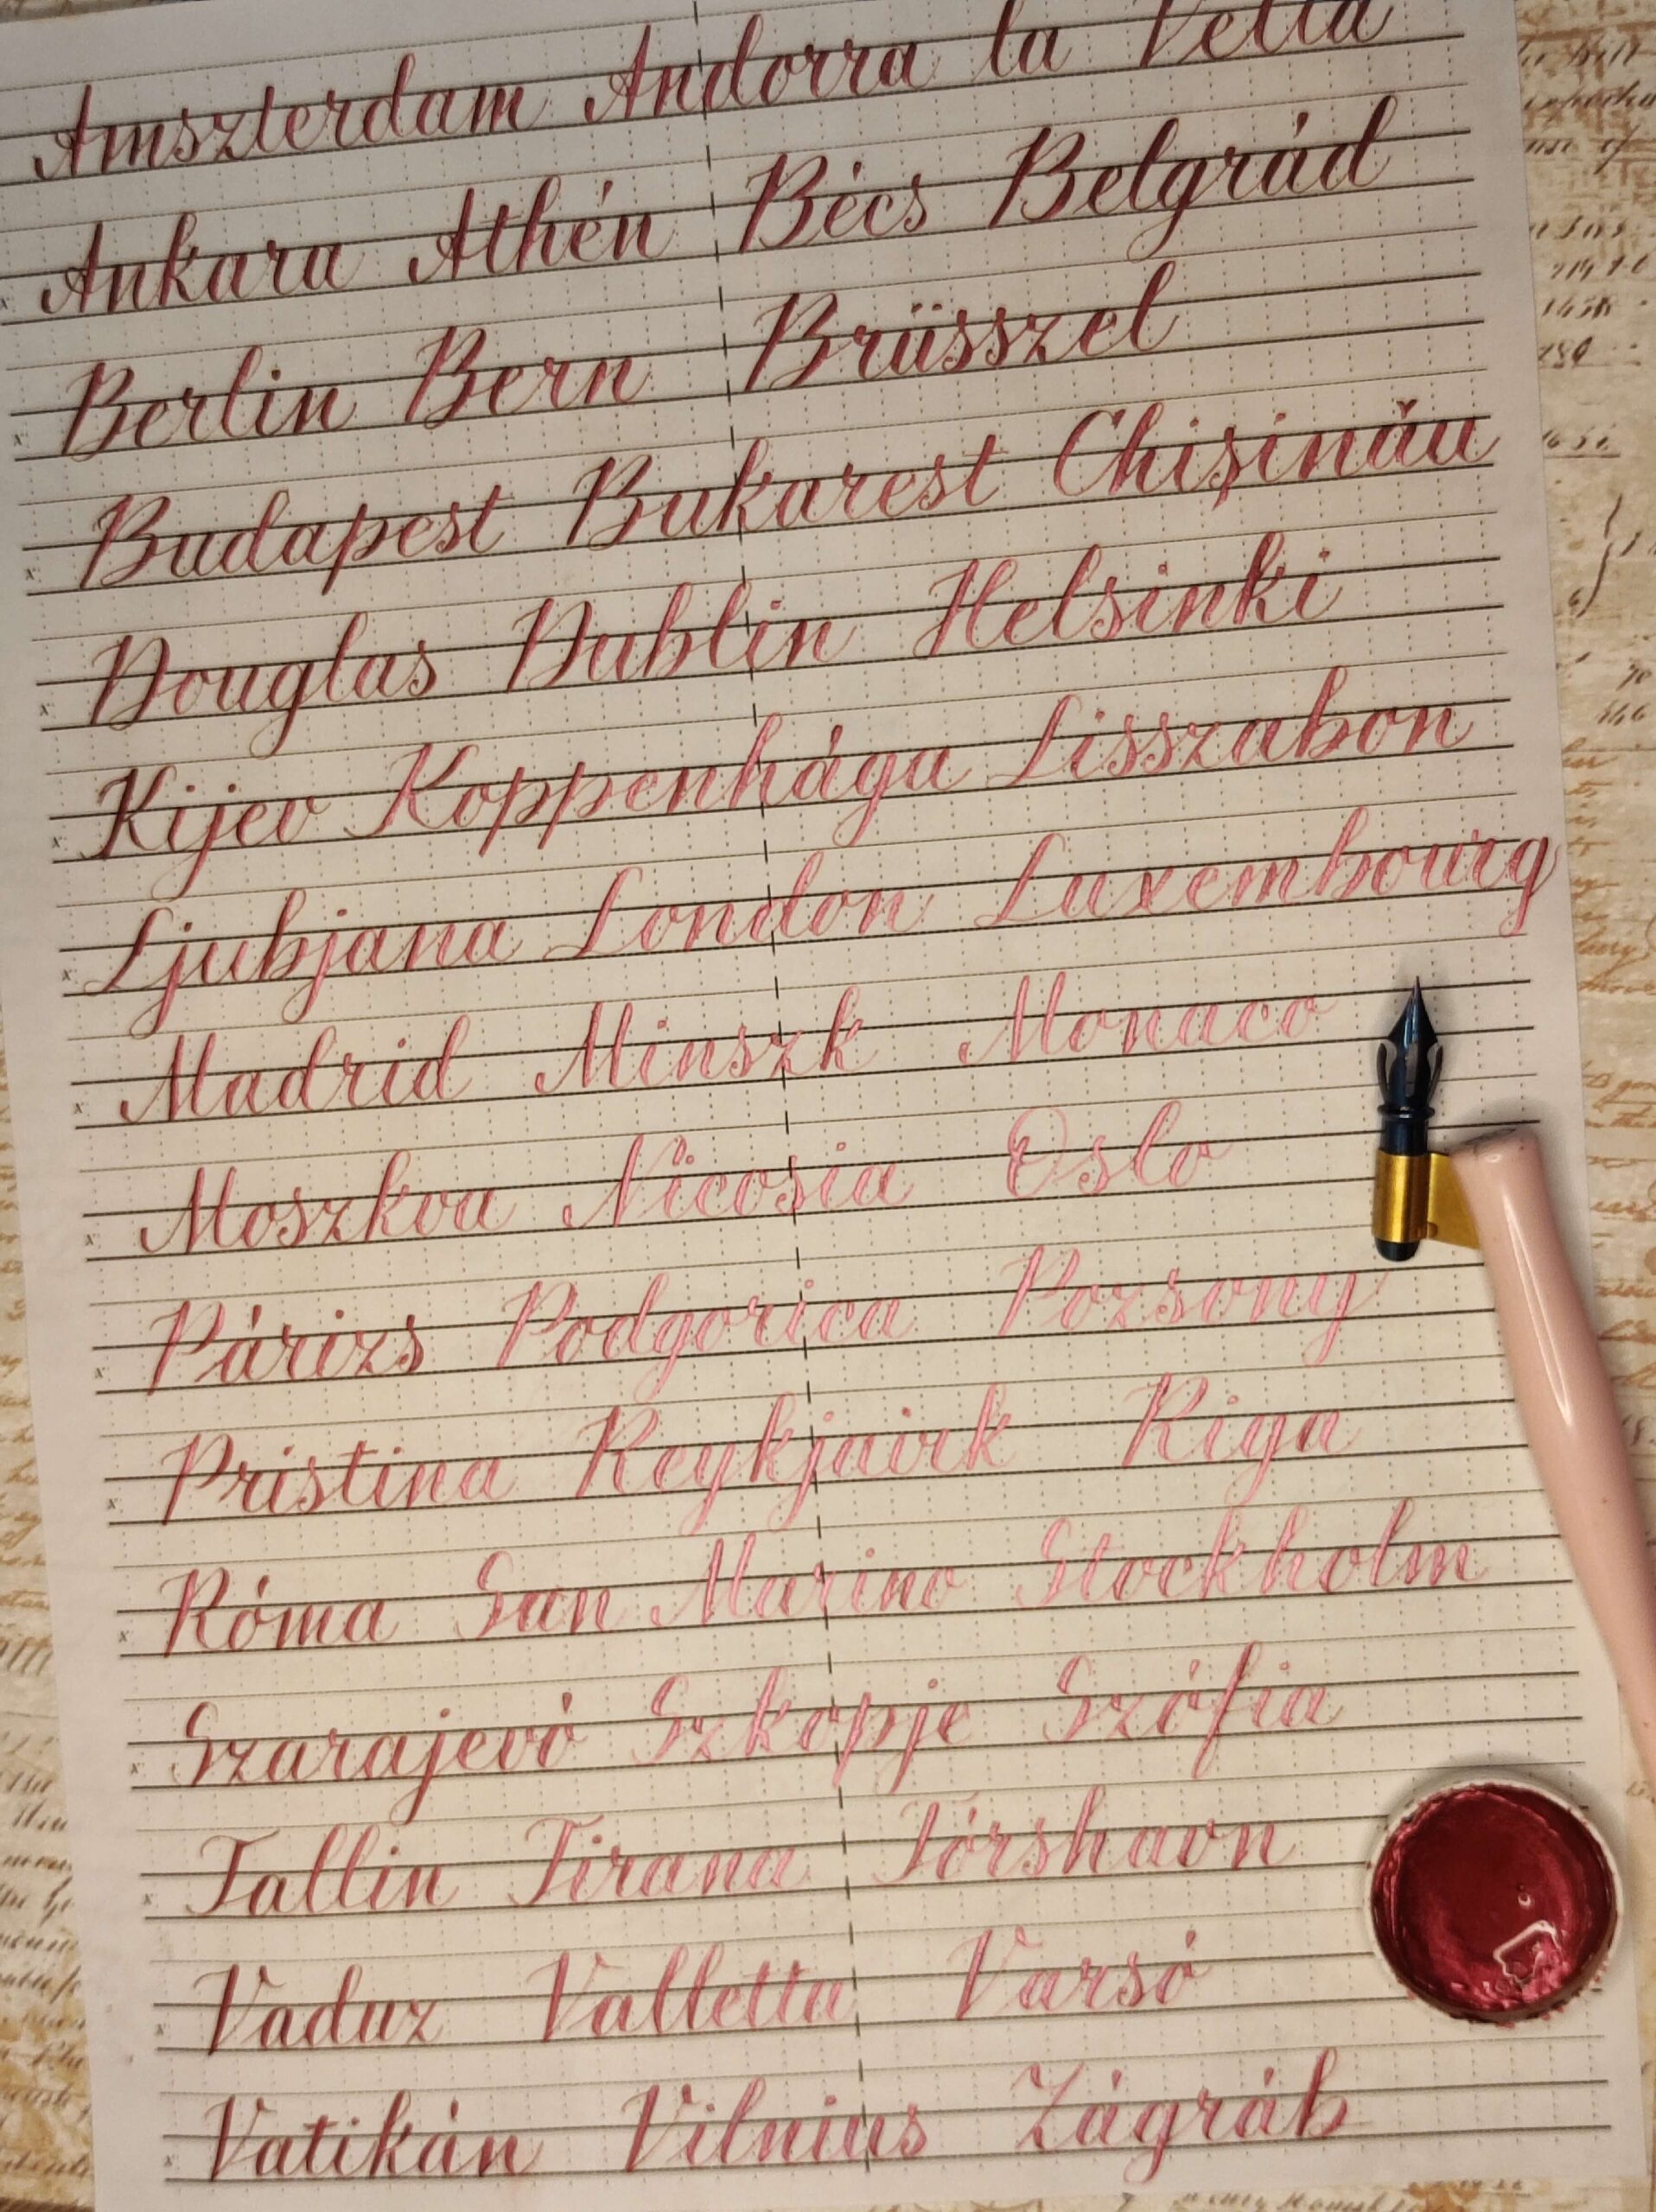 Amszterdam Andorra la Vella
Ankara Athén Bécs Belgrád
Berlin Bern Brüsszel
Budapest Bukarest Chișinău
Douglas Dublin Helsinki
Kijev Koppenhága Lisszabon
Ljubjana London Luxembourg
Madrid Minszk Monaco
Moszkva Nicosia Oslo
Párizs Podgorica Pozsony
Pristina Reykjavirk Riga
Róma San Marino Stockholm
Szarajevó Szkopje Szófia
Tallin Tirana Tórshavn
Vaduz Valletta Varsó
Vatikán Vilnius Zágráb